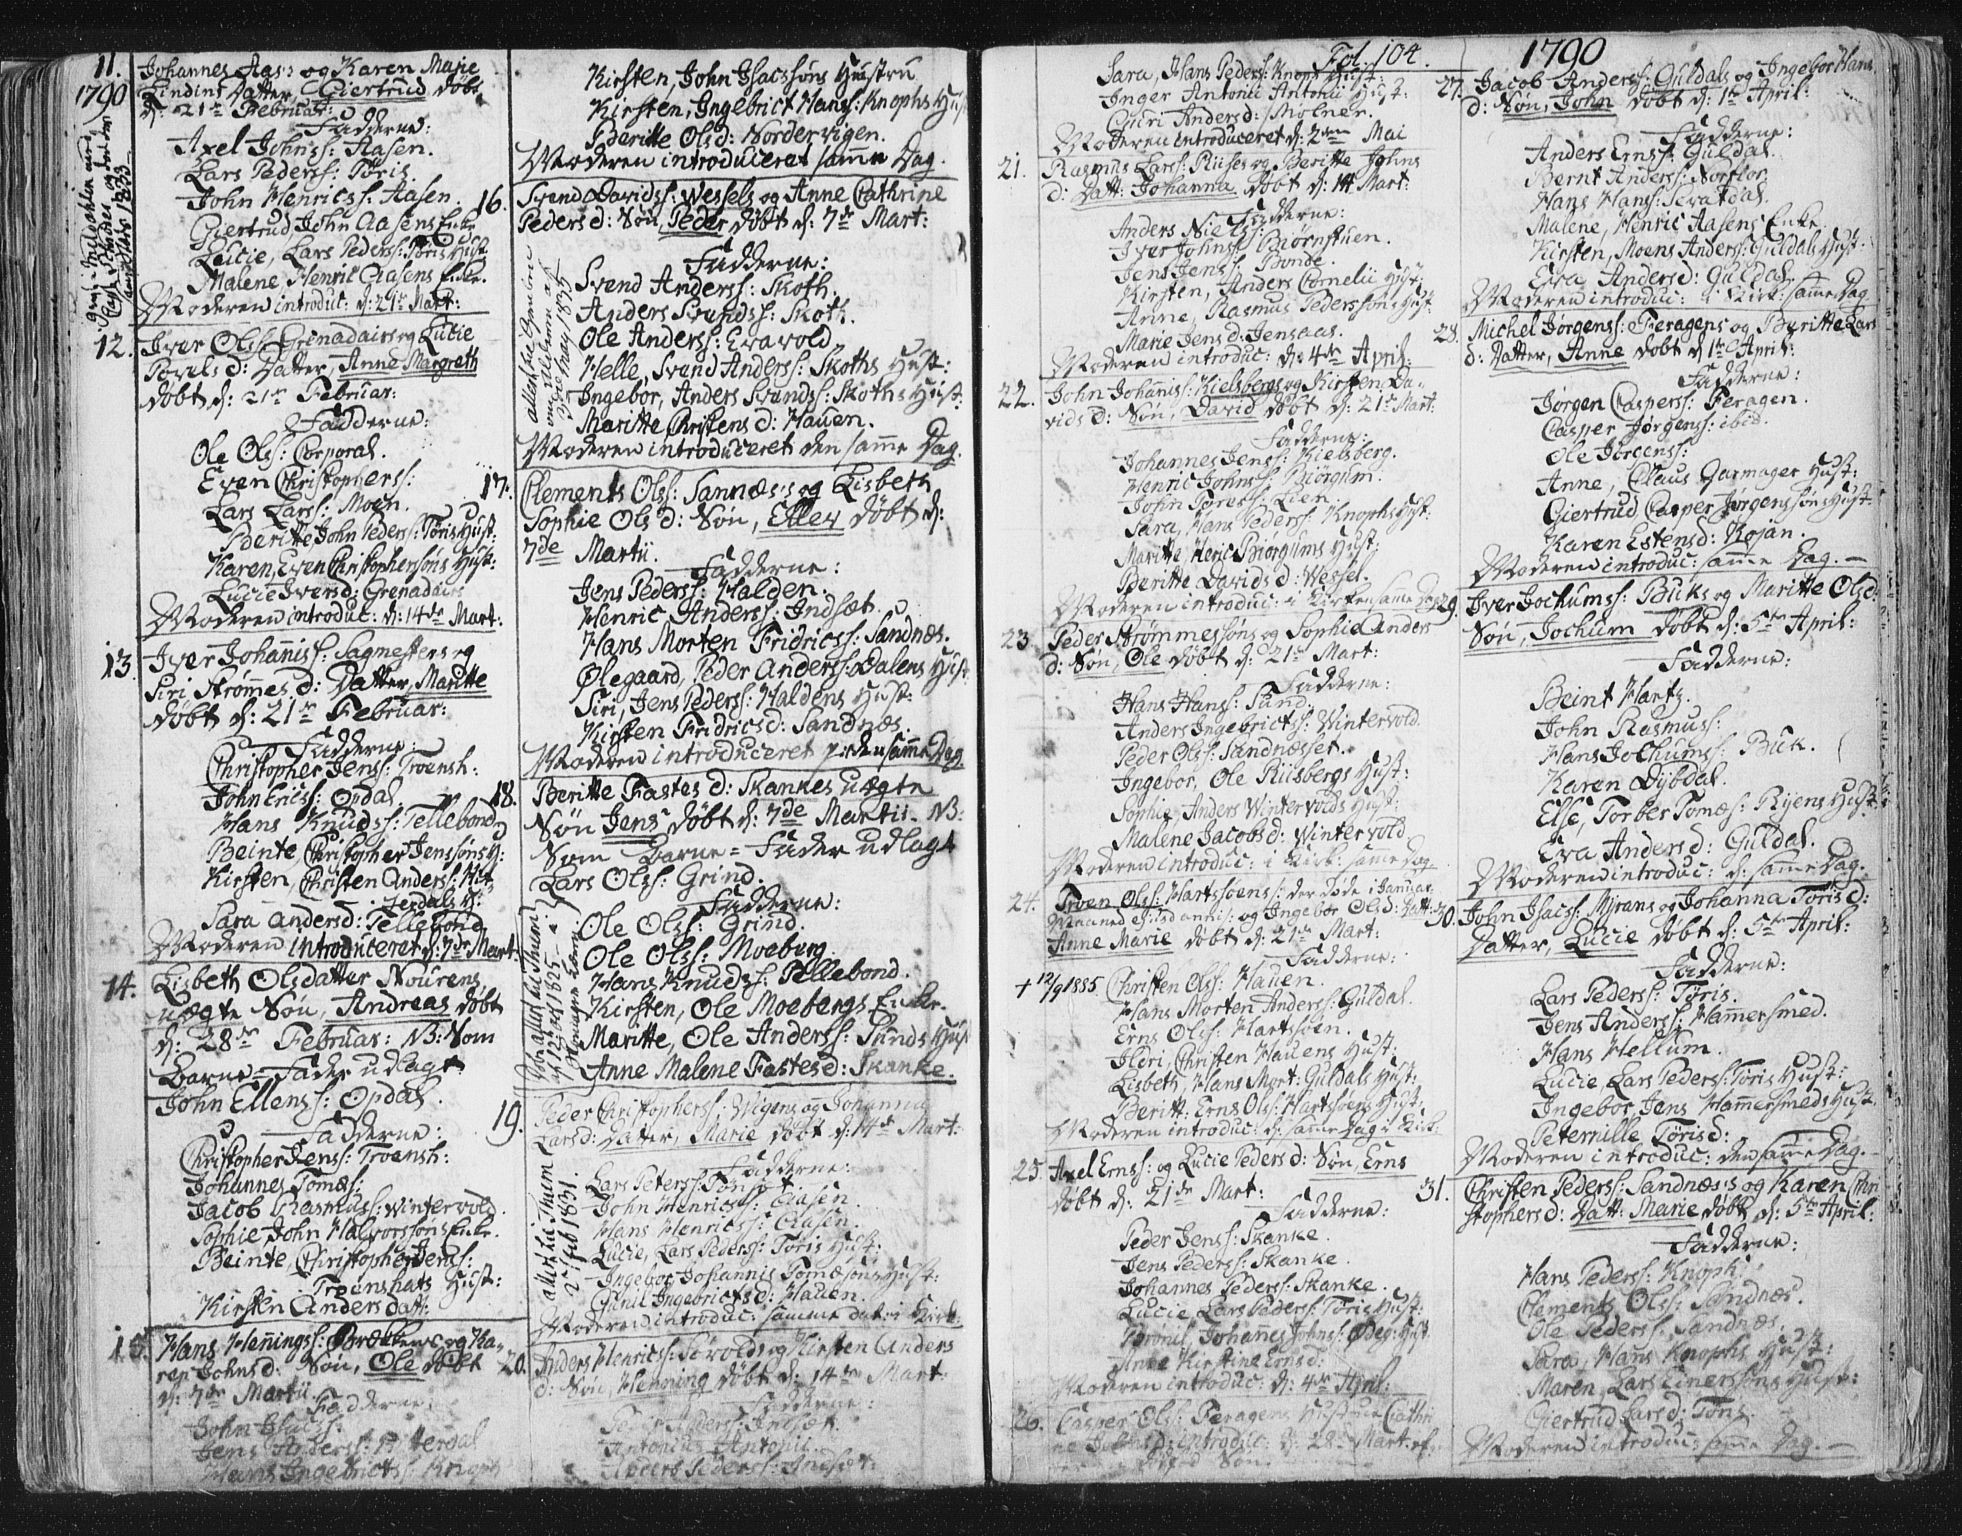 11.
1790
Johannes Aas: og Karen Marie
Lindins Datter, Giertrud döbt
d: 21de Februar:
Fadderne:
Axel Johnss: Aasen.
Lars Pederss: Töris.
John Henricss: Aasen.
Giertrud John Aasens Enke
Lucie, Lars Pederss: Töris Hust
Malene Henric Aasens Enke.
Moderen introduc: d: 21de Mart:
12. Iver Olss: Grenadairs og Lucie
d: Datter, Anne Margreth
döbt d: 21de Februar:
Fadderne:
Ole Olss: Corporal.
Even Christopherss:
Lars Larss: Moen.
Beritte John Pederss: Töris Hust:
Karen, Even Christophersöns Hust:
Lucie Iversd: Grenadairs
Moderen introduc: d: 14de Mart:
13. Iver Johanniss: Sagmesters og
Siri Strömmesd: Datter, Maritte
döbt d: 21de Februar:
Fadderne
Christopher Jenss: Troensh:
John Ericss: Opdal
Hans Knudss: Tellebond
Beinte, Christopher Jenssöns H:
Kirsten, Christen Anderss: Hit
terdals H:
Sara Andersd: Tellebond
Moderen introduceret d: 7de Mart:
14. Lisbeth Olsdatter Nourens,
uægte Sön, Andreas döbt
d: 28de Februar: NB: Som
Barne=Fader udlagt
John Ellenss: Opdal.
Fadderne:
Christopher Jenss: Troensh:
Johannes Tomæs:
Jacob Rasmuss: Wintervold.
Sophie John Halvorssöns Enke.
Beinte, Christopher Jenss:
Troenshats Hust:
Kirsten Andersdatt:
15. Hans Henningss: Brækkens og Ka-
ren Johnsd: Sön, Ole döbt
d: 7de Martii
Fadderne:
John Isacss:
Jens Anderss: Hitterdal
Hans Ingebrictss: Knoph
Kirsten, John Isacssöns Hustru
Kirsten, Ingebrict Hanss: Knophs Hus
Beritte Olsd: Nordervigen.
Moderen introduceret samme Dag.
16. Svend Davidss: Wessels og Anne Cathrine
Pedersd: Sön, Peder döbt d: 7de Mart:
Fadderne:
Svend Anderss: Skoth.
Anders Svendss: Skoth.
Ole Anderss: Evavold
Helle, Svend Anderss: Skoths Hust:
Ingebor, Anders Svendss: Skoths Hust.
Maritte Christensd: Hauen.
Moderen introduceret den samme Dag.
17. Clements Olss: Sannæs's og Lisbeth
Sophie Olsd: Sön, Ellev döbt d:
7de Martii.
Fadderne:
Jens Pederss: Halden.
Henric Anderss: Indsæt.
Hans Morten Fridricss: Sandnæs.
Ølegaard, Peder Anderss: Dalens Hust
Siri, Jens Pederss: Haldens Hust:
Kirsten Fridricsd: Sandnæs
Moderen introduceret den samme Dag
18. Beritte Fastesd: Skankes uægte
Sön Jens döbt d: 7de Martii. NB:
Som Barne=Fader udlagt
Lars Olss: Grind.
Fadderne:
Ole Olss: Grind.
Ole Olss: Moeberg.
Hans Knudss: Tellebond.
Kirsten, Ole Moebergs Enke.
Maritte, Ole Anderss: Sunds Hus
Anne Malene Fastesd: Skanke.
19. Peder Christopherss: Wigens og Johanna
Larsd: Datter, Marie döbt d: 14de Mart:
Fadderne:
Lars Peterss: Töris
John Henricss: Aasen.
Hans Henricss: Aasen.
Lucie, Lars Pederss: Töris Hust:
Ingebor Johannis Tomæsöns Hust:
Gunil Ingebrictsd: Hauen.
Moderen introduc: samme dat: i Kirk:
20. Anders Henricss: Sörvolds og Kirsten Anders
d: Sön, Henning döbt d: 14de Mart:
Fadderne:
Peder Anderss: Indsæt.
Antonius Antonii.
Anders Pederss: Indsæt:
Fol. 104.
Sara, Hans Pederss: Knophs Hust:
Inger Antonii Antonii Hust:
Guri Andersd: Mölner.
Moderen introduceret d: 2den Mai
21. Rasmus Larss: Riises og Beritte Johns
d: Datt: Johanna döbt d: 14 Mart:
Fadderne:
Anders Nielss:
Iver Johnss: Biörnstuen.
Jens Jenss: Bonde.
Kirsten, Anders Cornelii Hust
Anne, Rasmus Pederssöns Hust:
Marie Jensd: Jensaas.
Moderen introduc: d: 4de April:
22. John Johaniss: Kielsbergs og Kirsten Da-
vidsd: Sön, David döbt d: 21de Mart:
Fadderne:
Johannes Jenss: Kielsberg.
Henric Johnss: Biörgum.
John Töress: Lien.
Sara, Hans Pederss: Knophs Hust:
Maritte Heric Biörgums Hust
Beritte Davidsd: Wessel.
Moderen introduc: i Kirken samme Dag
23. Peder Strömmessöns og Sophie Anders
d: Sön, Ole döbt d: 21de Mart:
Fadderne:
Hans Hanss: Sund.
Anders Ingebrictss: Wintervold.
Peder Olss: Sandnæsset.
Ingebor, Ole Riisbergs Hust:
Sophie, Anders Wintervolds Hust:
Malene Jacobsd: Wintervold
Moderen introduc: i Kirk: samme Dag
24. Troen Olss: Hartssöens: der döde i Januar
Maaned hujus anni: og Ingebor Olsd: Datt:
Anne Marie döbt d: 21de Mart:
Fadderne:
† 12/9 1885.
Christen Olss: Hauen.
Hans Morten Anderss: Guldal.
Erns Olss: Hartsöen.
Ildri, Christen Hauens Hust:
Lisbeth, Hans Mort: Guldals Hust:
Beritt: Erns Olss: Hartsöens Hust:
Moderen introduc: d: samme Dag i Kirk:
25. Axel Ernss: og Lucie Pedersd: Sön, Erns
döbt d: 21de Mart:
Fadderne:
Peder Jenss: Skanke.
Jens Pederss: Skanke
Johannes Pederss: Skanke.
Lucie, Lars Pederss: Töris Hust:
Bronil, Johannes Johnss: Ødeg: Hust
Anne Kirstine Ernsd:
Moderen introduc: d: 4de April:
26. Casper Olss: Feragens Hustrue Cathri
ne introduc: d: 28de Mart: ef
Sön.
1790
27. Jacob Anderss: Guldals og Ingebor Hans
d: Sön, John döbt d: 1ste April:
Fadderne:
Anders Ernss: Guldal.
Bernt Anderss: Norflor
Hans Hanss:
Malene, Henric Aasens Enke
Kirsten, Moens Anderss: Guldals Hust:
Eva Andersd: Guldal.
Moderen introduc: i Kirk: samme Dag
28. Michel Jörgenss: Feragens og Beritte Lars
d: Datter, Anne döbt d: 1ste April:
Fadderne:
Jörgen Casperss: Feragen.
Casper Jörgenss: ibid.
Ole Jörgenss:
Anne, Claus Garmager Hust:
Giertrud Casper Jörgenssöns Hust:
Karen Estensd: Kojan.
Moderen introduc: samme Dag.
29. Iver Jochumss: Buks og Maritte Olsd:
Sön, Jochum döbt d: 5te April:
Fadderne:
Beint Hartz.
John Rasmuss:
Hans Jochumss: Buk.
Karen Dybdal.
Else, Torber Tomæs: Ryens Hust:
Eva Andersd: Guldal.
Moderen introduc: d: samme Dag.
30. John Isacss: Myrans og Johanna Törisd:
Datter, Lucie döbt d: 5te April:
Fadderne:
Lars Pederss: Töris.
Jens Anderss: Hammersmed.
Hans Hellum.
Lucie Lars Pederss: Töris Hust:
Ingebor, Jens Hammersmeds Hust.
Peternille Törisd:
Moderen introduc: den samme Dag.
31. Christen Pederss: Sandnæs's og Karen Chri
stophersd: Datt: Marie döbt d: 5te April:
Fadderne:
Hans Pederss: Knoph
Clements Olss: Sandnæs.
Ole Pederss: Sandnæs.
Sara, Hans Knophs Hust:
Maren, Lars Einerssöns Hust:
Giertrud Larsd: Töris.
Moderen introduc: samme Dag.